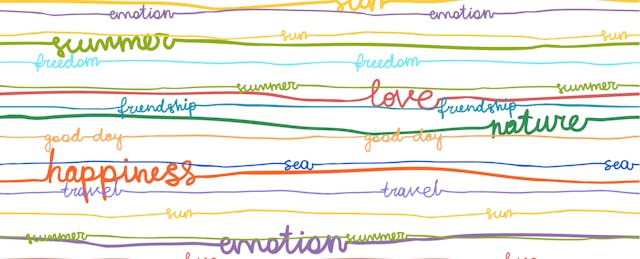 sun
emotion emotion
sun sun
summer
freedom freedom
summer summer
love
friendship friendship
nature
good day good day
sea sea
happiness
travel travel
sun sun
summer summer
emotion